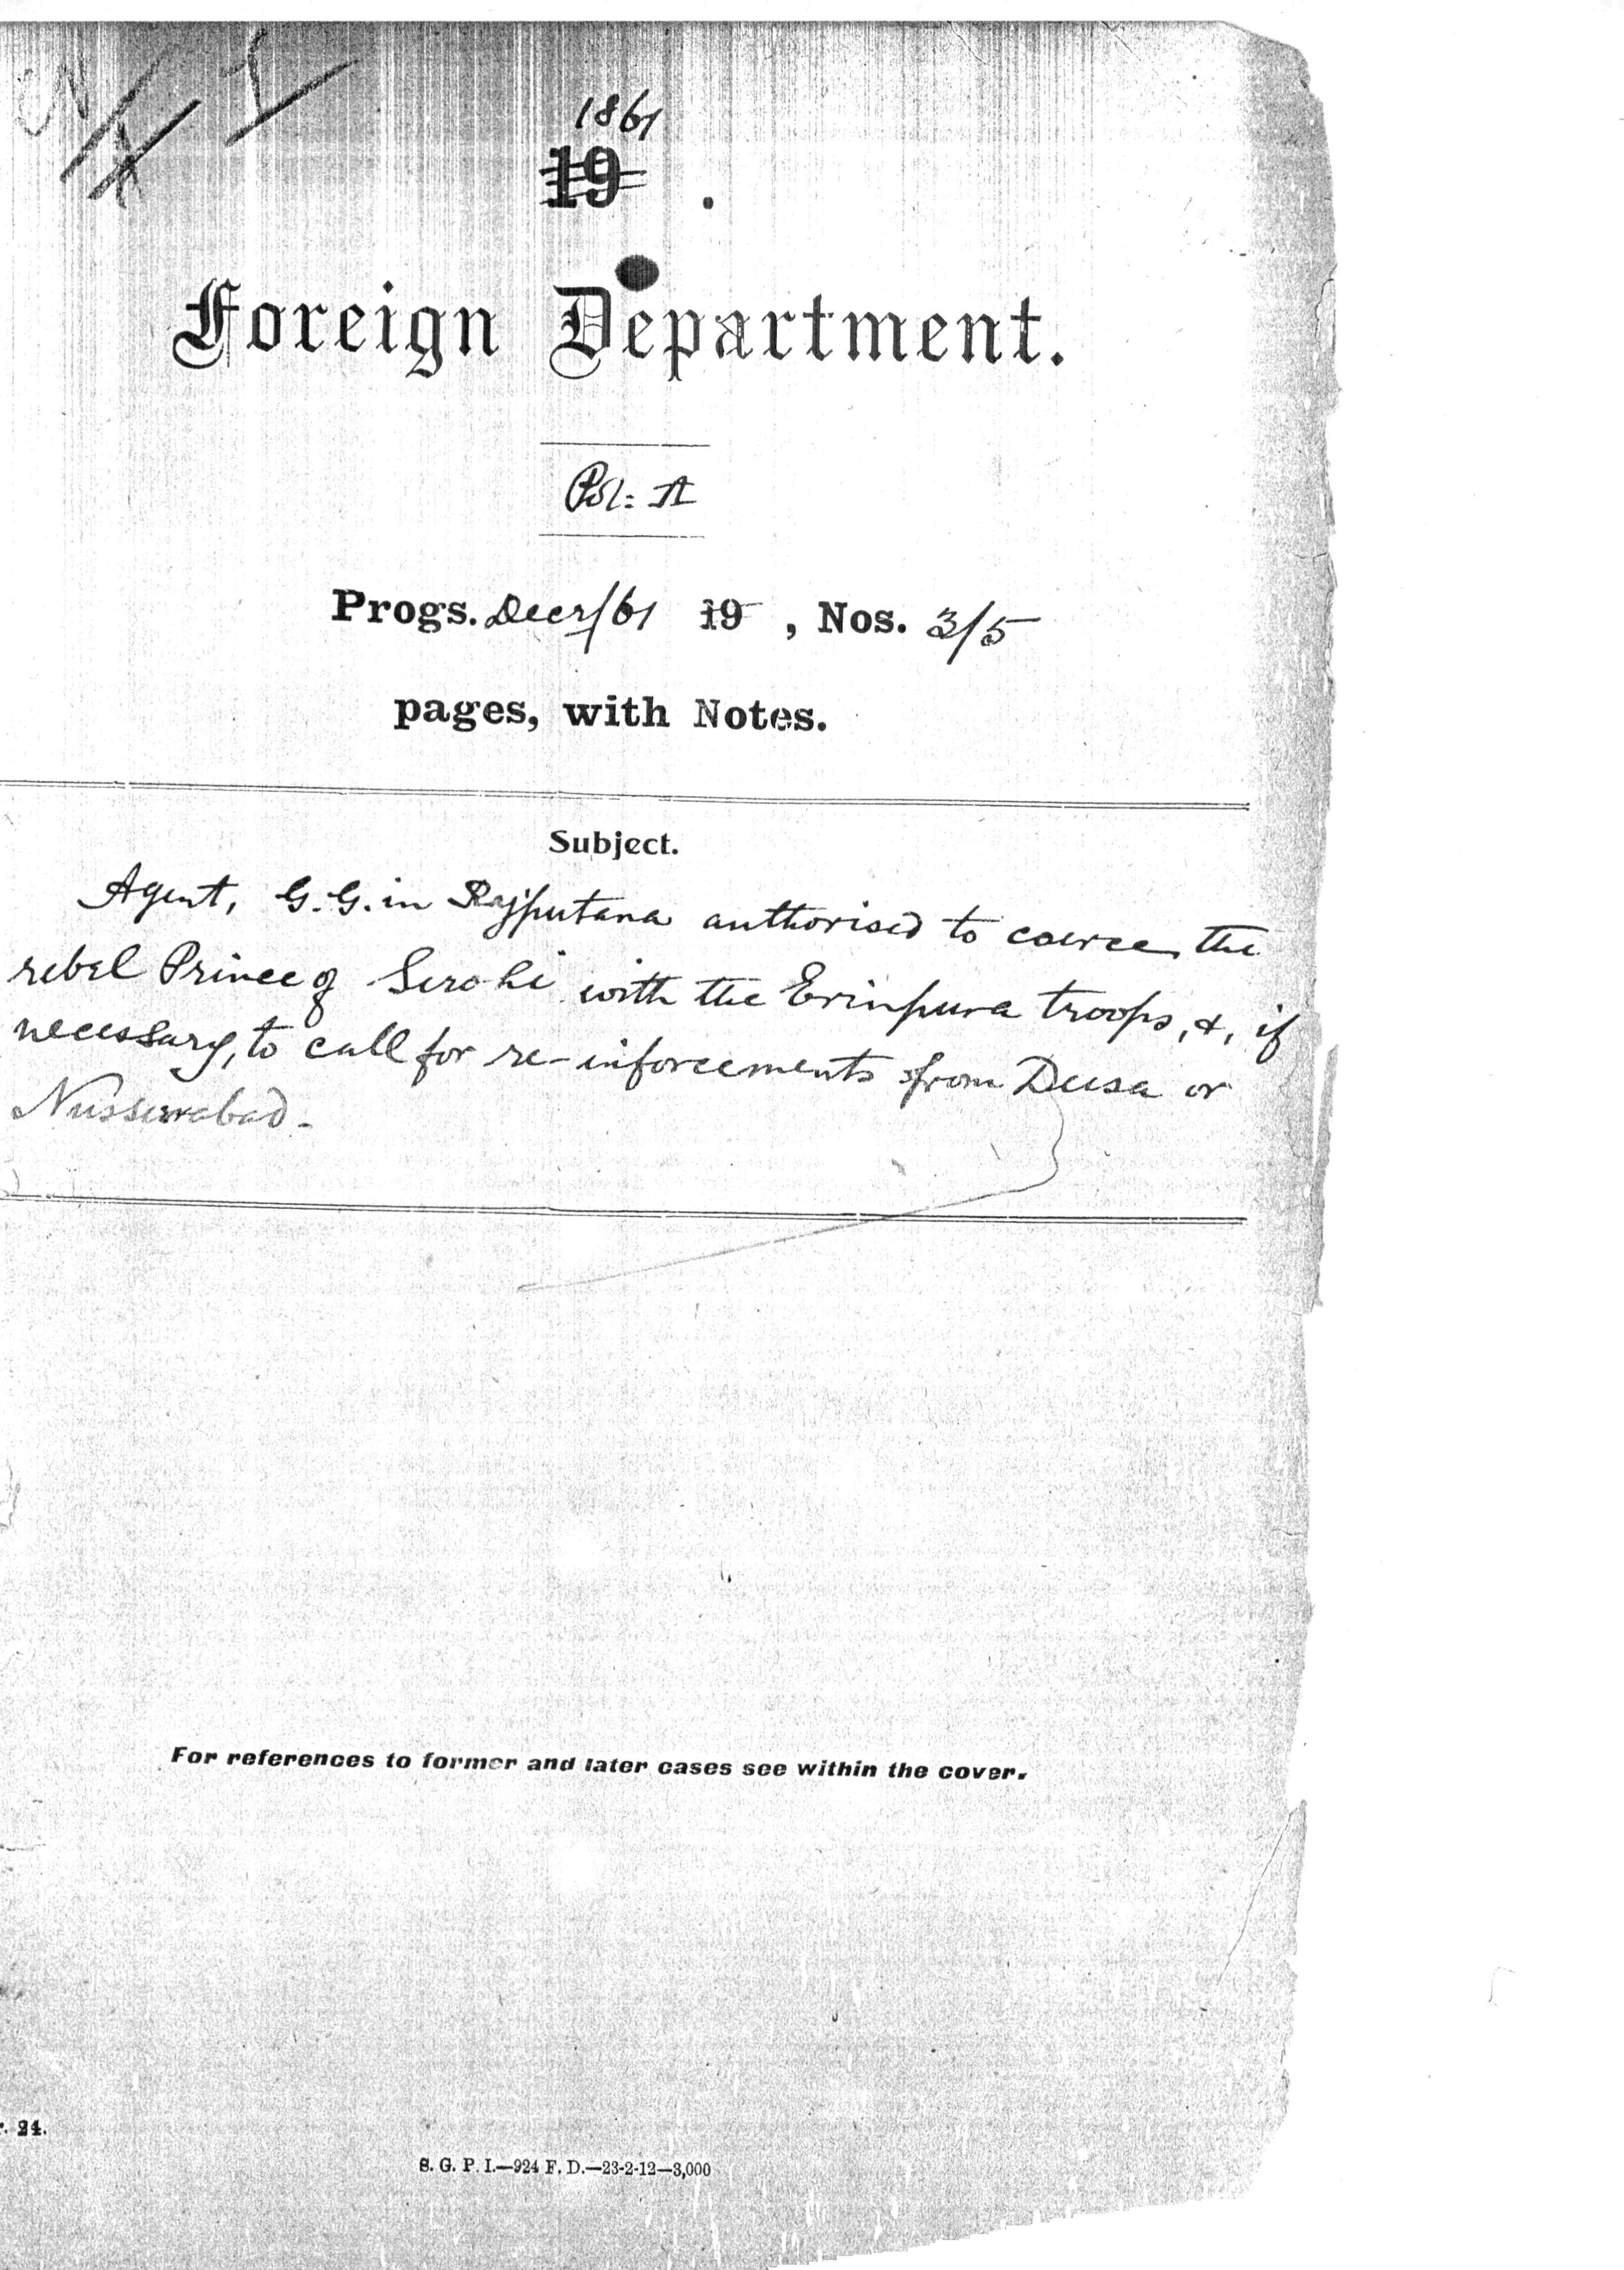 1861
19 .
Foreign Department.
Pol: A
Progs. Decr/61 19 , Nos. 3/5
pages, with Notes.
Subject.
Agent, G.G. in Rajputana authorised to coerce the
rebel Prince of Serohi with the Erinpura troops, &, if
necessary, to call for re-inforcements from Deesa or
Nusserabad -
For references to former and later cases see within the cover.
r. 24.
S. G. P. I.—924 F. D.—23-2-12—3,000